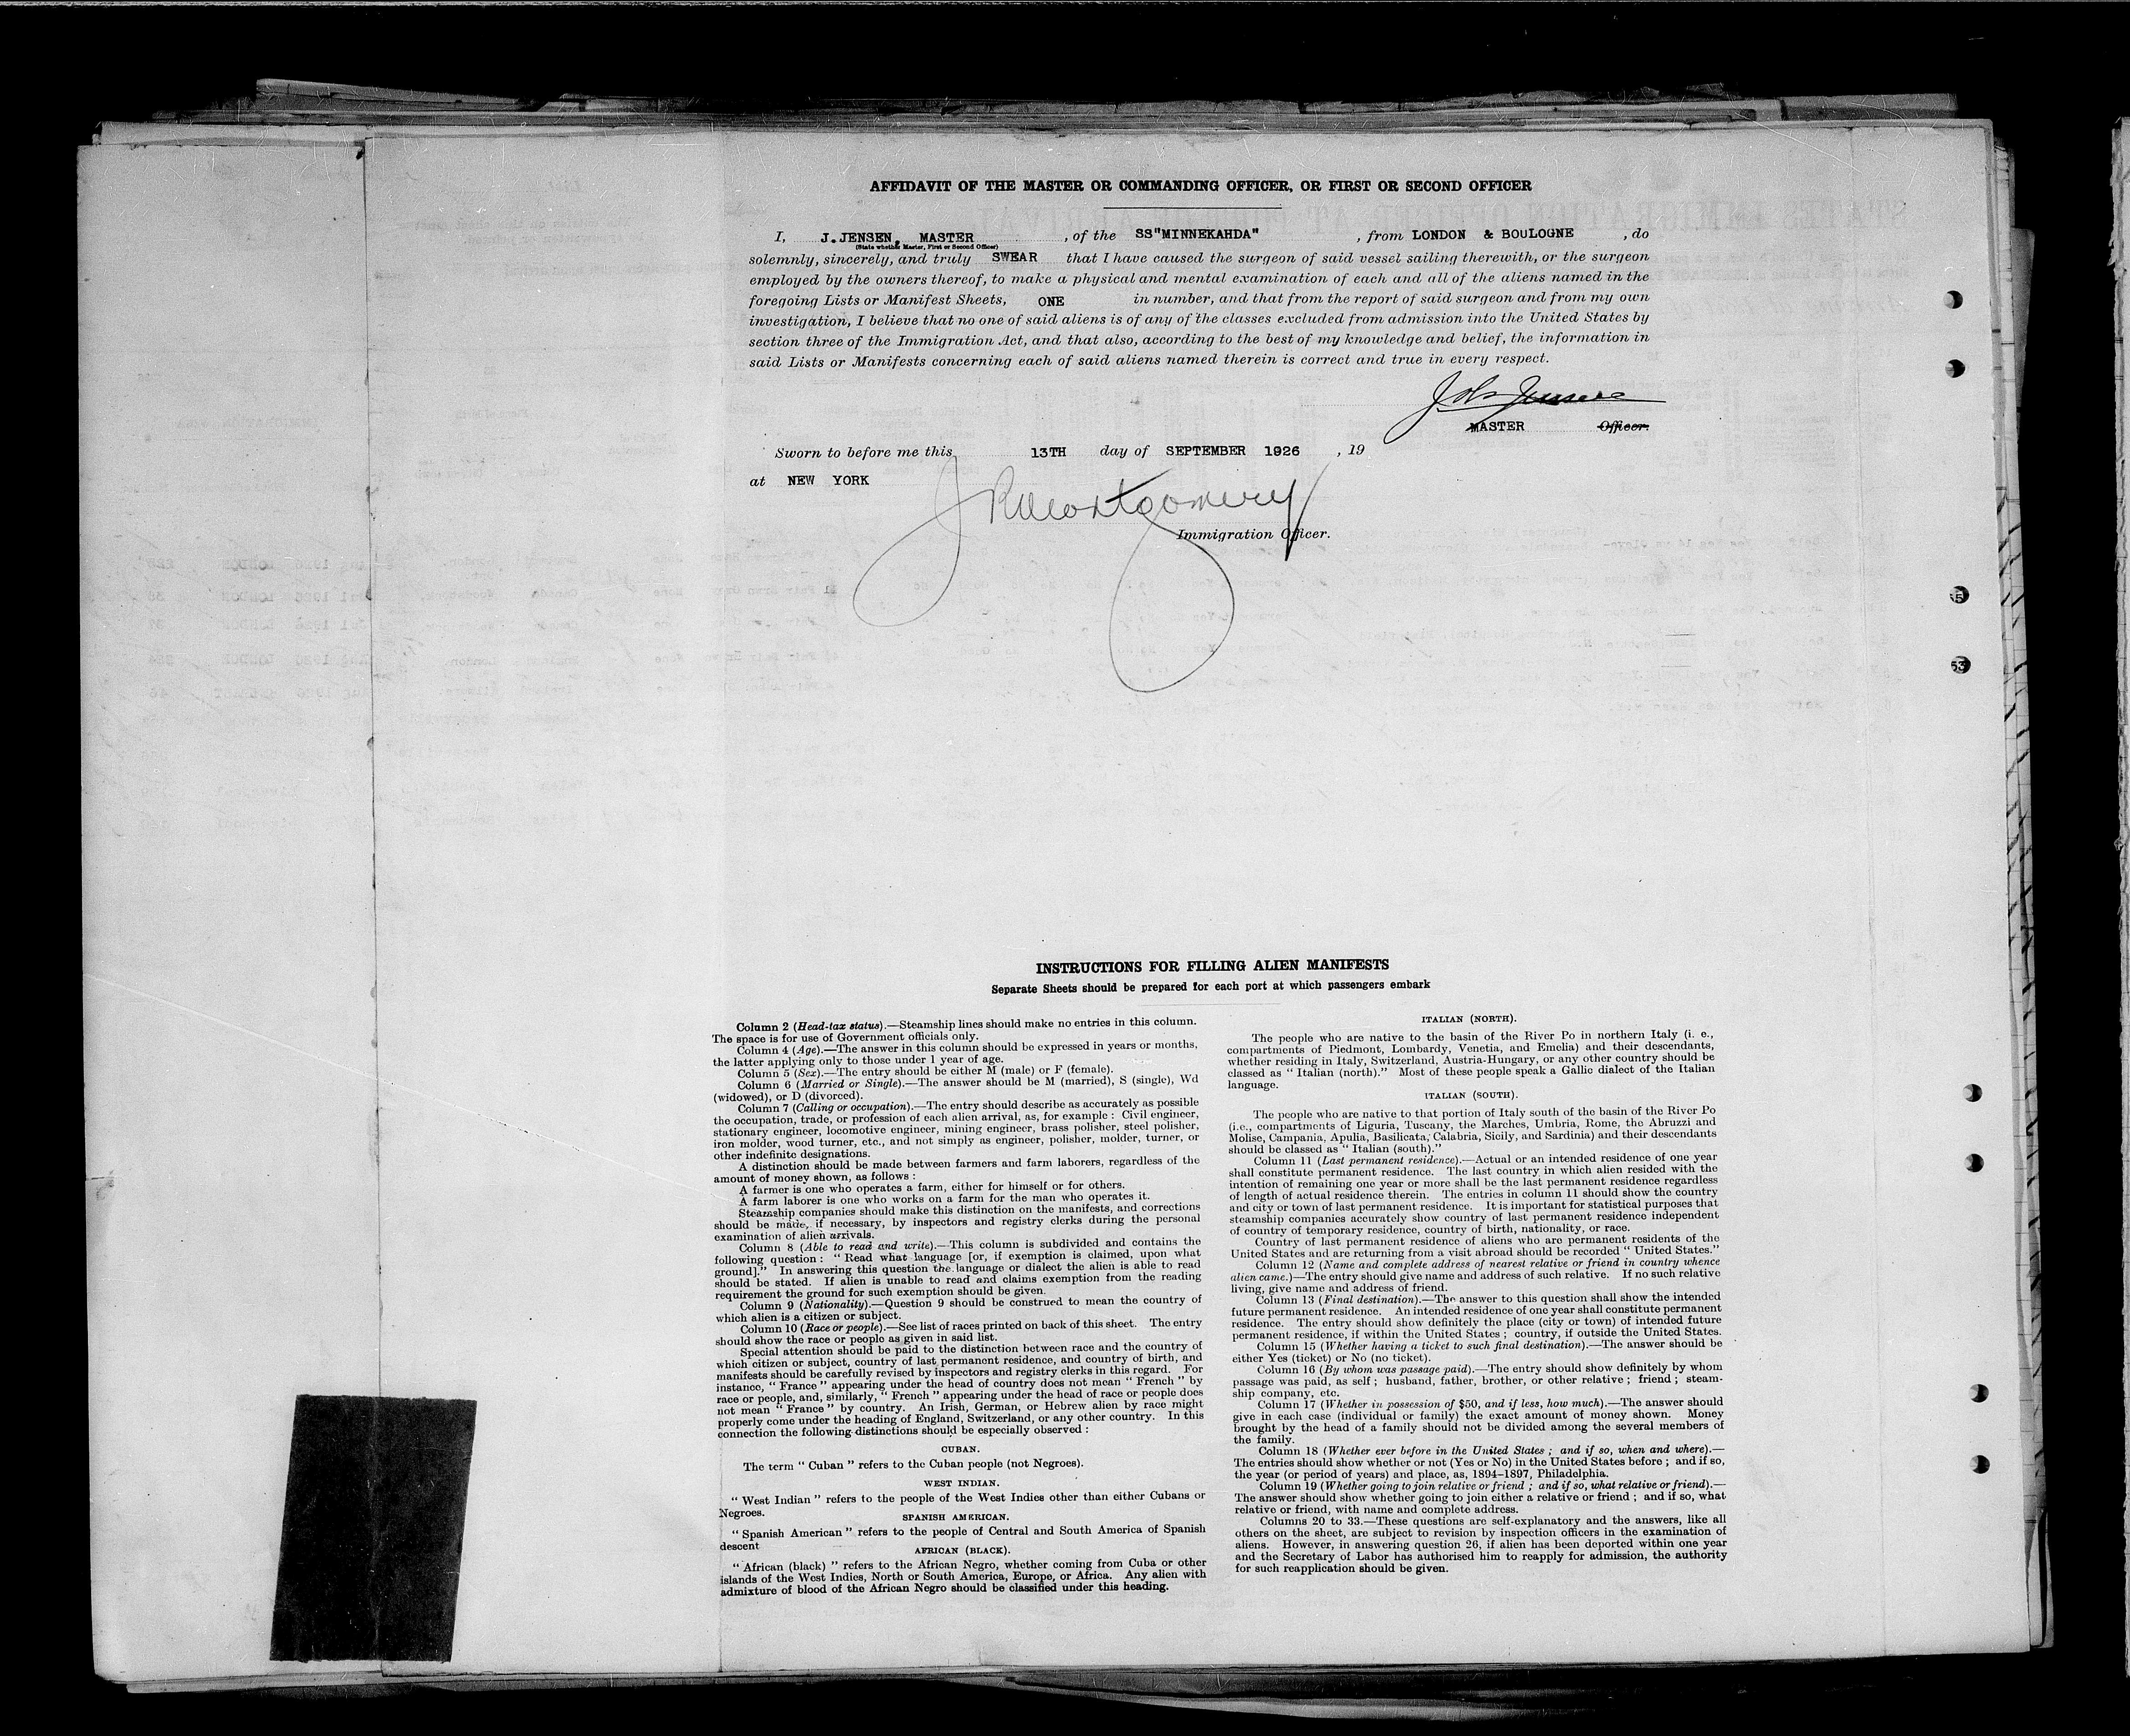 AFFIDAVIT OF THE MASTER OR COMMANDING OFFICER, OR FIRST OR SECOND OFFICER
I, J.JENSEN, MASTER , of the SS"MINNEKAHDA" , from LONDON & BOULOGNE , do
(State whether Master, First or Second Officer)
solemnly, sincerely, and truly SWEAR that I have caused the surgeon of said vessel sailing therewith, or the surgeon
employed by the owners thereof, to make a physical and mental examination of each and all of the aliens named in the
foregoing Lists or Manifest Sheets, ONE in number, and that from the report of said surgeon and from my own
investigation, I believe that no one of said aliens is of any of the classes excluded from admission into the United States by
section three of the Immigration Act, and that also, according to the best of my knowledge and belief, the information in
said Lists or Manifests concerning each of said aliens named therein is correct and true in every respect.
Jensen
MASTER Officer.
Sworn to before me this 13TH day of SEPTEMBER 1926 , 19
at NEW YORK
J R Montgomery
Immigration Officer.
INSTRUCTIONS FOR FILLING ALIEN MANIFESTS
Separate Sheets should be prepared for each port at which passengers embark
Column 2 (Head-tax status).—Steamship lines should make no entries in this column.
The space is for use of Government officials only.
Column 4 (Age).—The answer in this column should be expressed in years or months,
the latter applying only to those under 1 year of age.
Column 5 (Sex).—The entry should be either M (male) or F (female).
Column 6 (Married or Single).—The answer should be M (married), S (single), Wd
(widowed), or D (divorced).
Column 7 (Calling or occupation).—The entry should describe as accurately as possible
the occupation, trade, or profession of each alien arrival, as, for example : Civil engineer,
stationary engineer, locomotive engineer, mining engineer, brass polisher, steel polisher,
iron molder, wood turner, etc., and not simply as engineer, polisher, molder, turner, or
other indefinite designations.
A distinction should be made between farmers and farm laborers, regardless of the
amount of money shown, as follows :
A farmer is one who operates a farm, either for himself or for others.
A farm laborer is one who works on a farm for the man who operates it.
Steamship companies should make this distinction on the manifests, and corrections
should be made, if necessary, by inspectors and registry clerks during the personal
examination of alien arrivals.
Column 8 (Able to read and write).—This column is subdivided and contains the
following question : " Read what language [or, if exemption is claimed, upon what
ground]." In answering this question the language or dialect the alien is able to read
should be stated. If alien is unable to read and claims exemption from the reading
requirement the ground for such exemption should be given.
Column 9 (Nationality).—Question 9 should be construed to mean the country of
which alien is a citizen or subject.
Column 10 (Race or people).—See list of races printed on back of this sheet. The entry
should show the race or people as given in said list.
Special attention should be paid to the distinction between race and the country of
which citizen or subject, country of last permanent residence, and country of birth, and
manifests should be carefully revised by inspectors and registry clerks in this regard. For
instance, " France " appearing under the head of country does not mean " French " by
race or people, and, similarly, " French " appearing under the head of race or people does
not mean " France " by country. An Irish, German, or Hebrew alien by race might
properly come under the heading of England, Switzerland, or any other country. In this
connection the following distinctions should be especially observed :
CUBAN.
The term " Cuban " refers to the Cuban people (not Negroes).
WEST INDIAN.
" West Indian " refers to the people of the West Indies other than either Cubans or
Negroes.
SPANISH AMERICAN.
" Spanish American " refers to the people of Central and South America of Spanish
descent
AFRICAN (BLACK).
" African (black) " refers to the African Negro, whether coming from Cuba or other
islands of the West Indies, North or South America, Europe, or Africa. Any alien with
admixture of blood of the African Negro should be classified under this heading.
ITALIAN (NORTH).
The people who are native to the basin of the River Po in northern Italy (i. e.,
compartments of Piedmont, Lombardy, Venetia, and Emelia) and their descendants,
whether residing in Italy, Switzerland, Austria-Hungary, or any other country should be
classed as " Italian (north)." Most of these people speak a Gallic dialect of the Italian
language.
ITALIAN (SOUTH).
The people who are native to that portion of Italy south of the basin of the River Po
(i.e., compartments of Liguria, Tuscany, the Marches, Umbria, Rome, the Abruzzi and
Molise, Campania, Apulia, Basilicata, Calabria, Sicily, and Sardinia) and their descendants
should be classed as " Italian (south)."
Column 11 (Last permanent residence).—Actual or an intended residence of one year
shall constitute permanent residence. The last country in which alien resided with the
intention of remaining one year or more shall be the last permanent residence regardless
of length of actual residence therein. The entries in column 11 should show the country
and city or town of last permanent residence. It is important for statistical purposes that
steamship companies accurately show country of last permanent residence independent
of country of temporary residence, country of birth, nationality, or race.
Country of last permanent residence of aliens who are permanent residents of the
United States and are returning from a visit abroad should be recorded " United States."
Column 12 (Name and complete address of nearest relative or friend in country whence
alien came.)—The entry should give name and address of such relative. If no such relative
living, give name and address of friend.
Column 13 (Final destination).—The answer to this question shall show the intended
future permanent residence. An intended residence of one year shall constitute permanent
residence. The entry should show definitely the place (city or town) of intended future
permanent residence, if within the United States ; country, if outside the United States.
Column 15 (Whether having a ticket to such final destination).—The answer should be
either Yes (ticket) or No (no ticket).
Column 16 (By whom was passage paid).—The entry should show definitely by whom
passage was paid, as self ; husband, father, brother, or other relative ; friend ; steam-
ship company, etc.
Column 17 (Whether in possession of $50, and if less, how much).—The answer should
give in each case (individual or family) the exact amount of money shown. Money
brought by the head of a family should not be divided among the several members of
the family.
Column 18 (Whether ever before in the United States ; and if so, when and where).—
The entries should show whether or not (Yes or No) in the United States before ; and if so,
the year (or period of years) and place, as, 1894–1897, Philadelphia.
Column 19 (Whether going to join relative or friend ; and if so, what relative or friend).—
The answer should show whether going to join either a relative or friend ; and if so, what
relative or friend, with name and complete address.
Columns 20 to 33.—These questions are self-explanatory and the answers, like all
others on the sheet, are subject to revision by inspection officers in the examination of
aliens. However, in answering question 26, if alien has been deported within one year
and the Secretary of Labor has authorised him to reapply for admission, the authority
for such reapplication should be given.